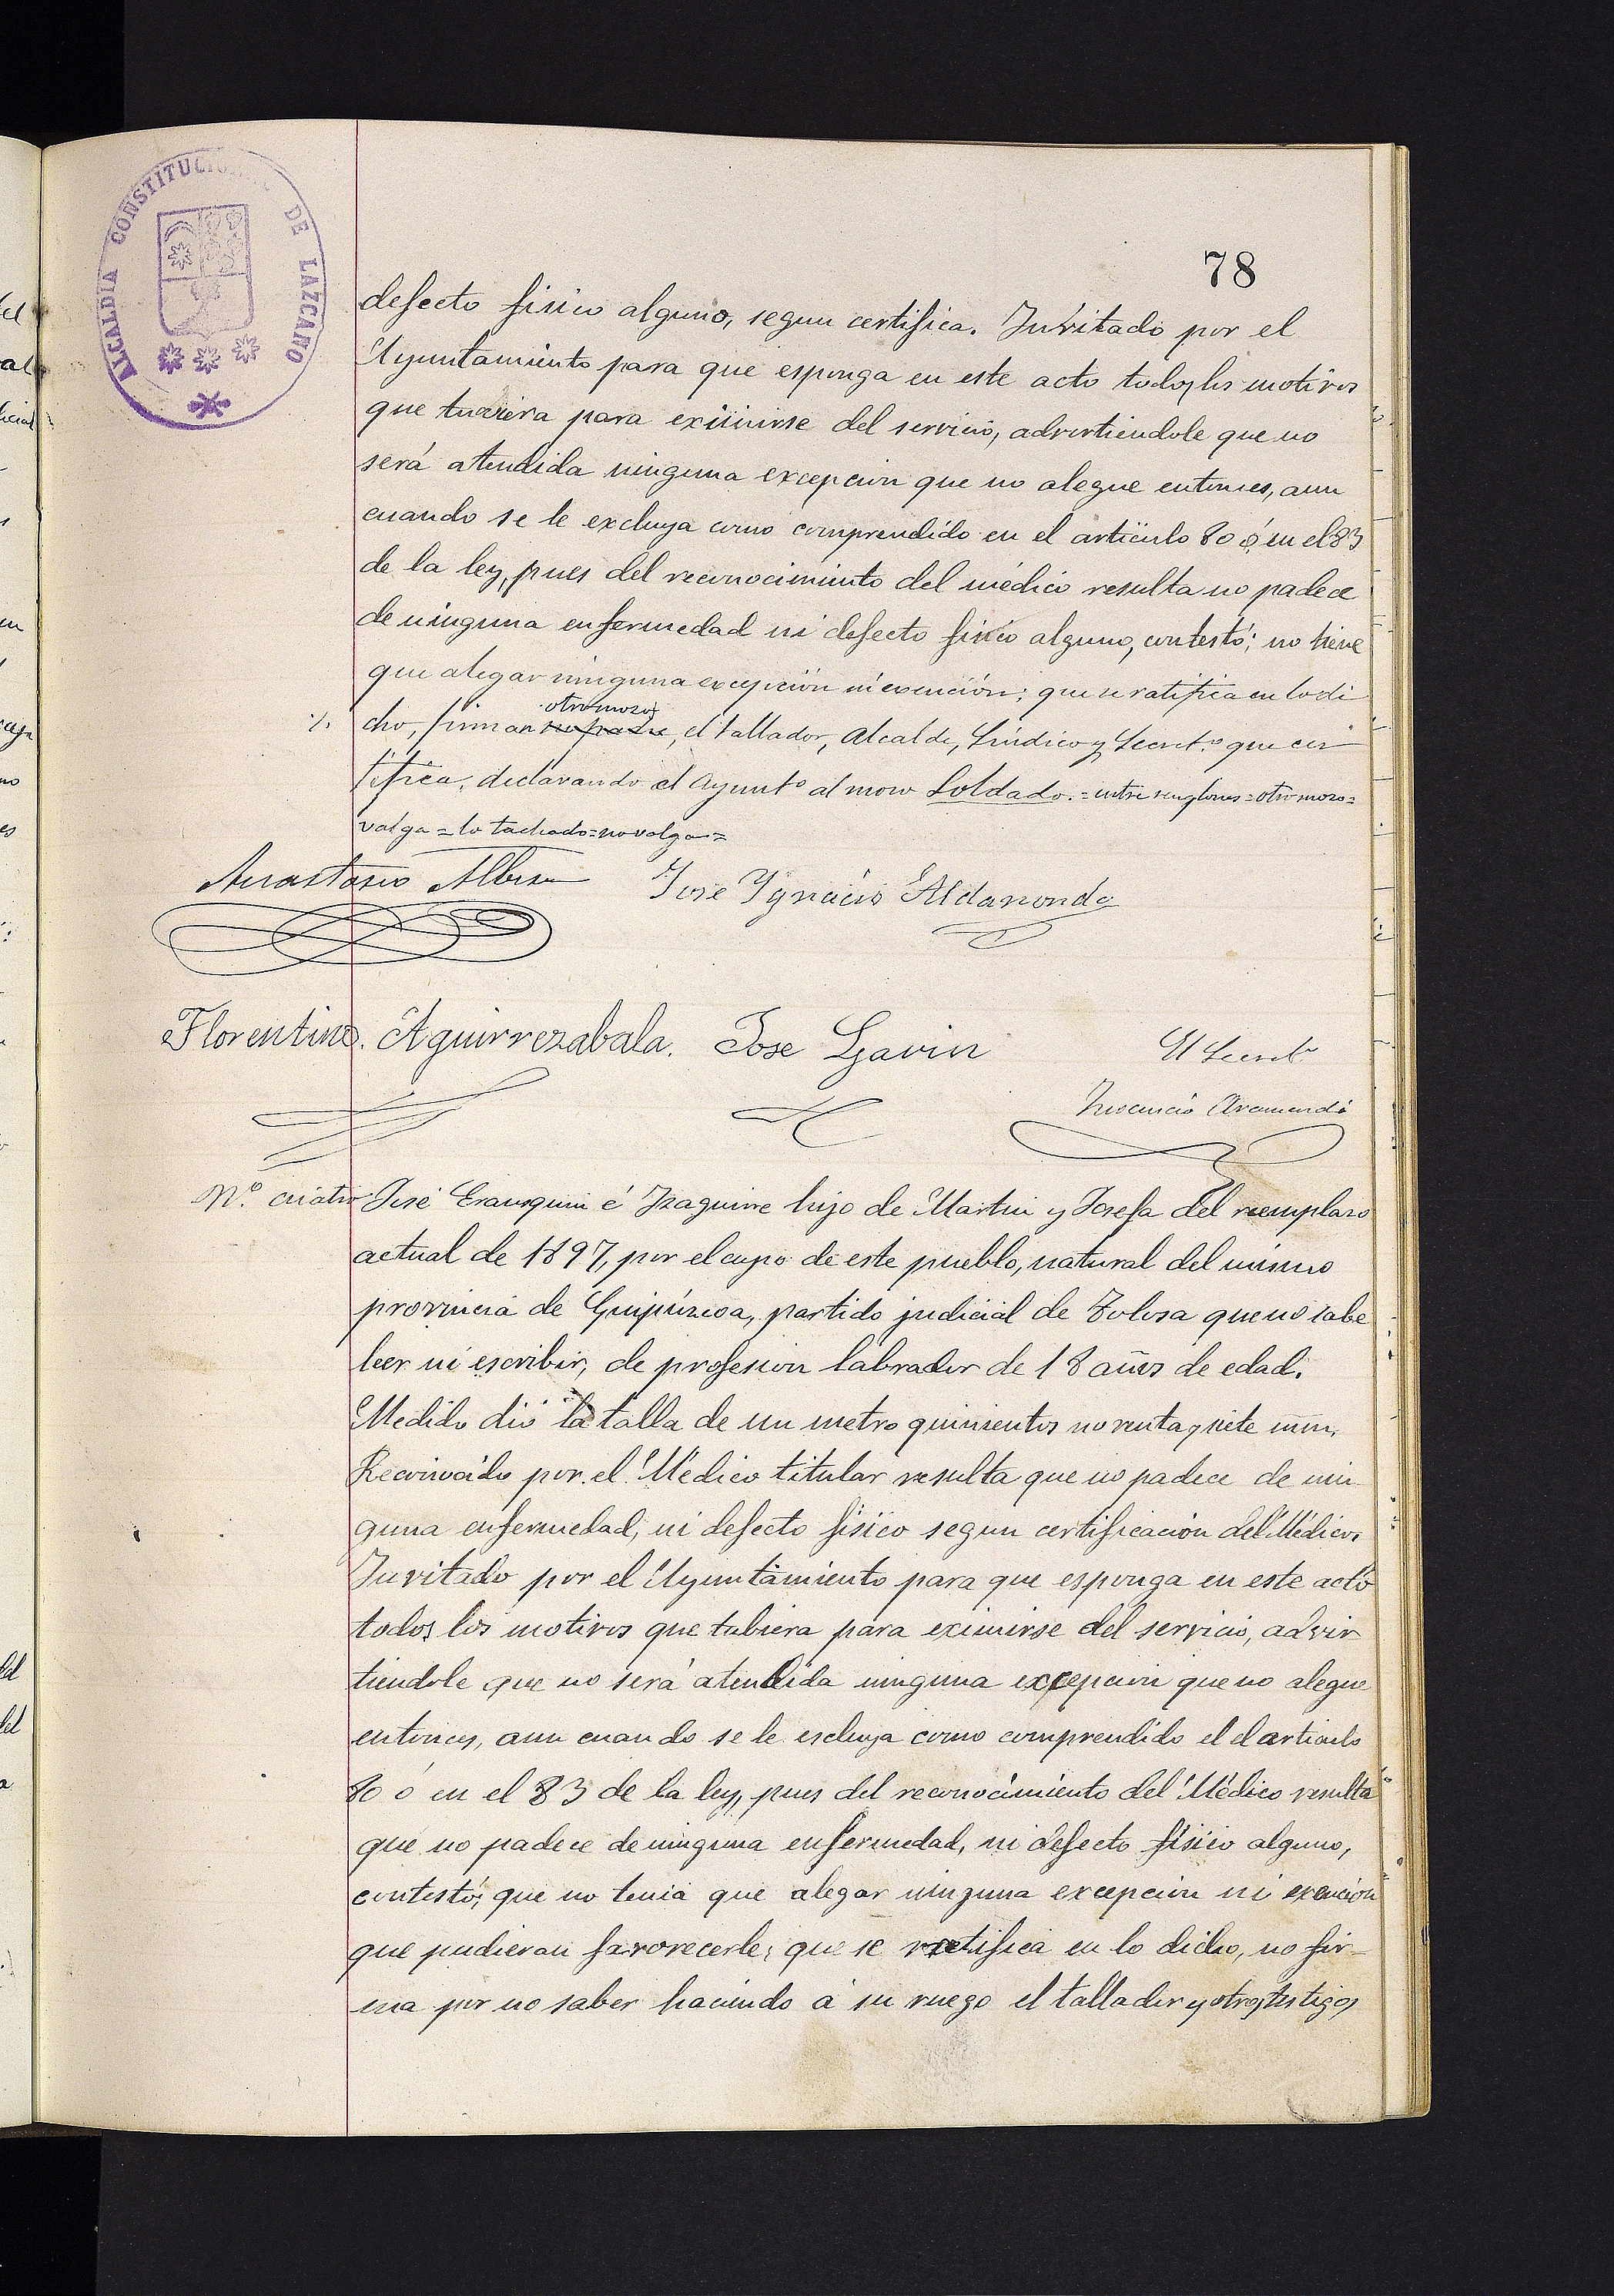 ALCALDIA CONSTITUCIONAL DE LAZCANO
78
defecto fisico alguno, segun certifica. Invitado por el
Ayuntamiento para que esponga en este acto todos los motivos
que tuviera para eximirse del servicio, advirtiendole que no
será atendida ninguna excepcion que no alegue entonces, aun
cuando se le excluya como comprendido en el articulo 80 ó en el 83
de la ley, pues del reconocimiento del médico resulta no padece
de ninguna enfermedad ni defecto fisico alguno, contestó; no tiene
que alegar ninguna excepción ni exención; que se ratifica en lo di
otro mozo
cho, firman su padre, el tallador, Alcalde, Sindico y Secret.º que cer
tifica, declarando el Ayuntº al mozo Soldado.=entre renglones=otro mozo=
valga=lo tachado=no valga=
Anastasio Albisu Jose Ygnacio Aldanondo
Florentino Aguirrezabala. Jose Gavin El Secretº
Inocencio Aramendi
Nº. cuatro José Erausquin é Izaguirre hijo de Martin y Josefa del reemplazo
actual de 1897, por el cupo de este pueblo, natural del mismo
provincia de Guipúzcoa, partido judicial de Tolosa que no sabe
leer ni escribir, de profesion labrador de 18 años de edad.
Medido dió la talla de un metro quinientos noventa y siete mm.
Reconocido por el Médico titular resulta que no padece de nin
guna enfermedad, ni defecto fisico segun certificación del Médico.
Invitado por el Ayuntamiento para que esponga en este acto
todos los motivos que tubiera para eximirse del servicio, advir
tiendole que no será atendida ninguna excepcion que no alegue
entonces, aun cuando se le escluya como comprendido el el articulo
80 ó en el 83 de la ley, pues del reconocimiento del Médico resulta
que no padece de ninguna enfermedad, ni defecto fisico alguno,
contestó; que no tenia que alegar ninguna excepcion ni exencion
que pudieran favorecerle; que se ratifica en lo dicho, no fir-
ma por no saber haciendo á su ruego el tallador y otros testigos